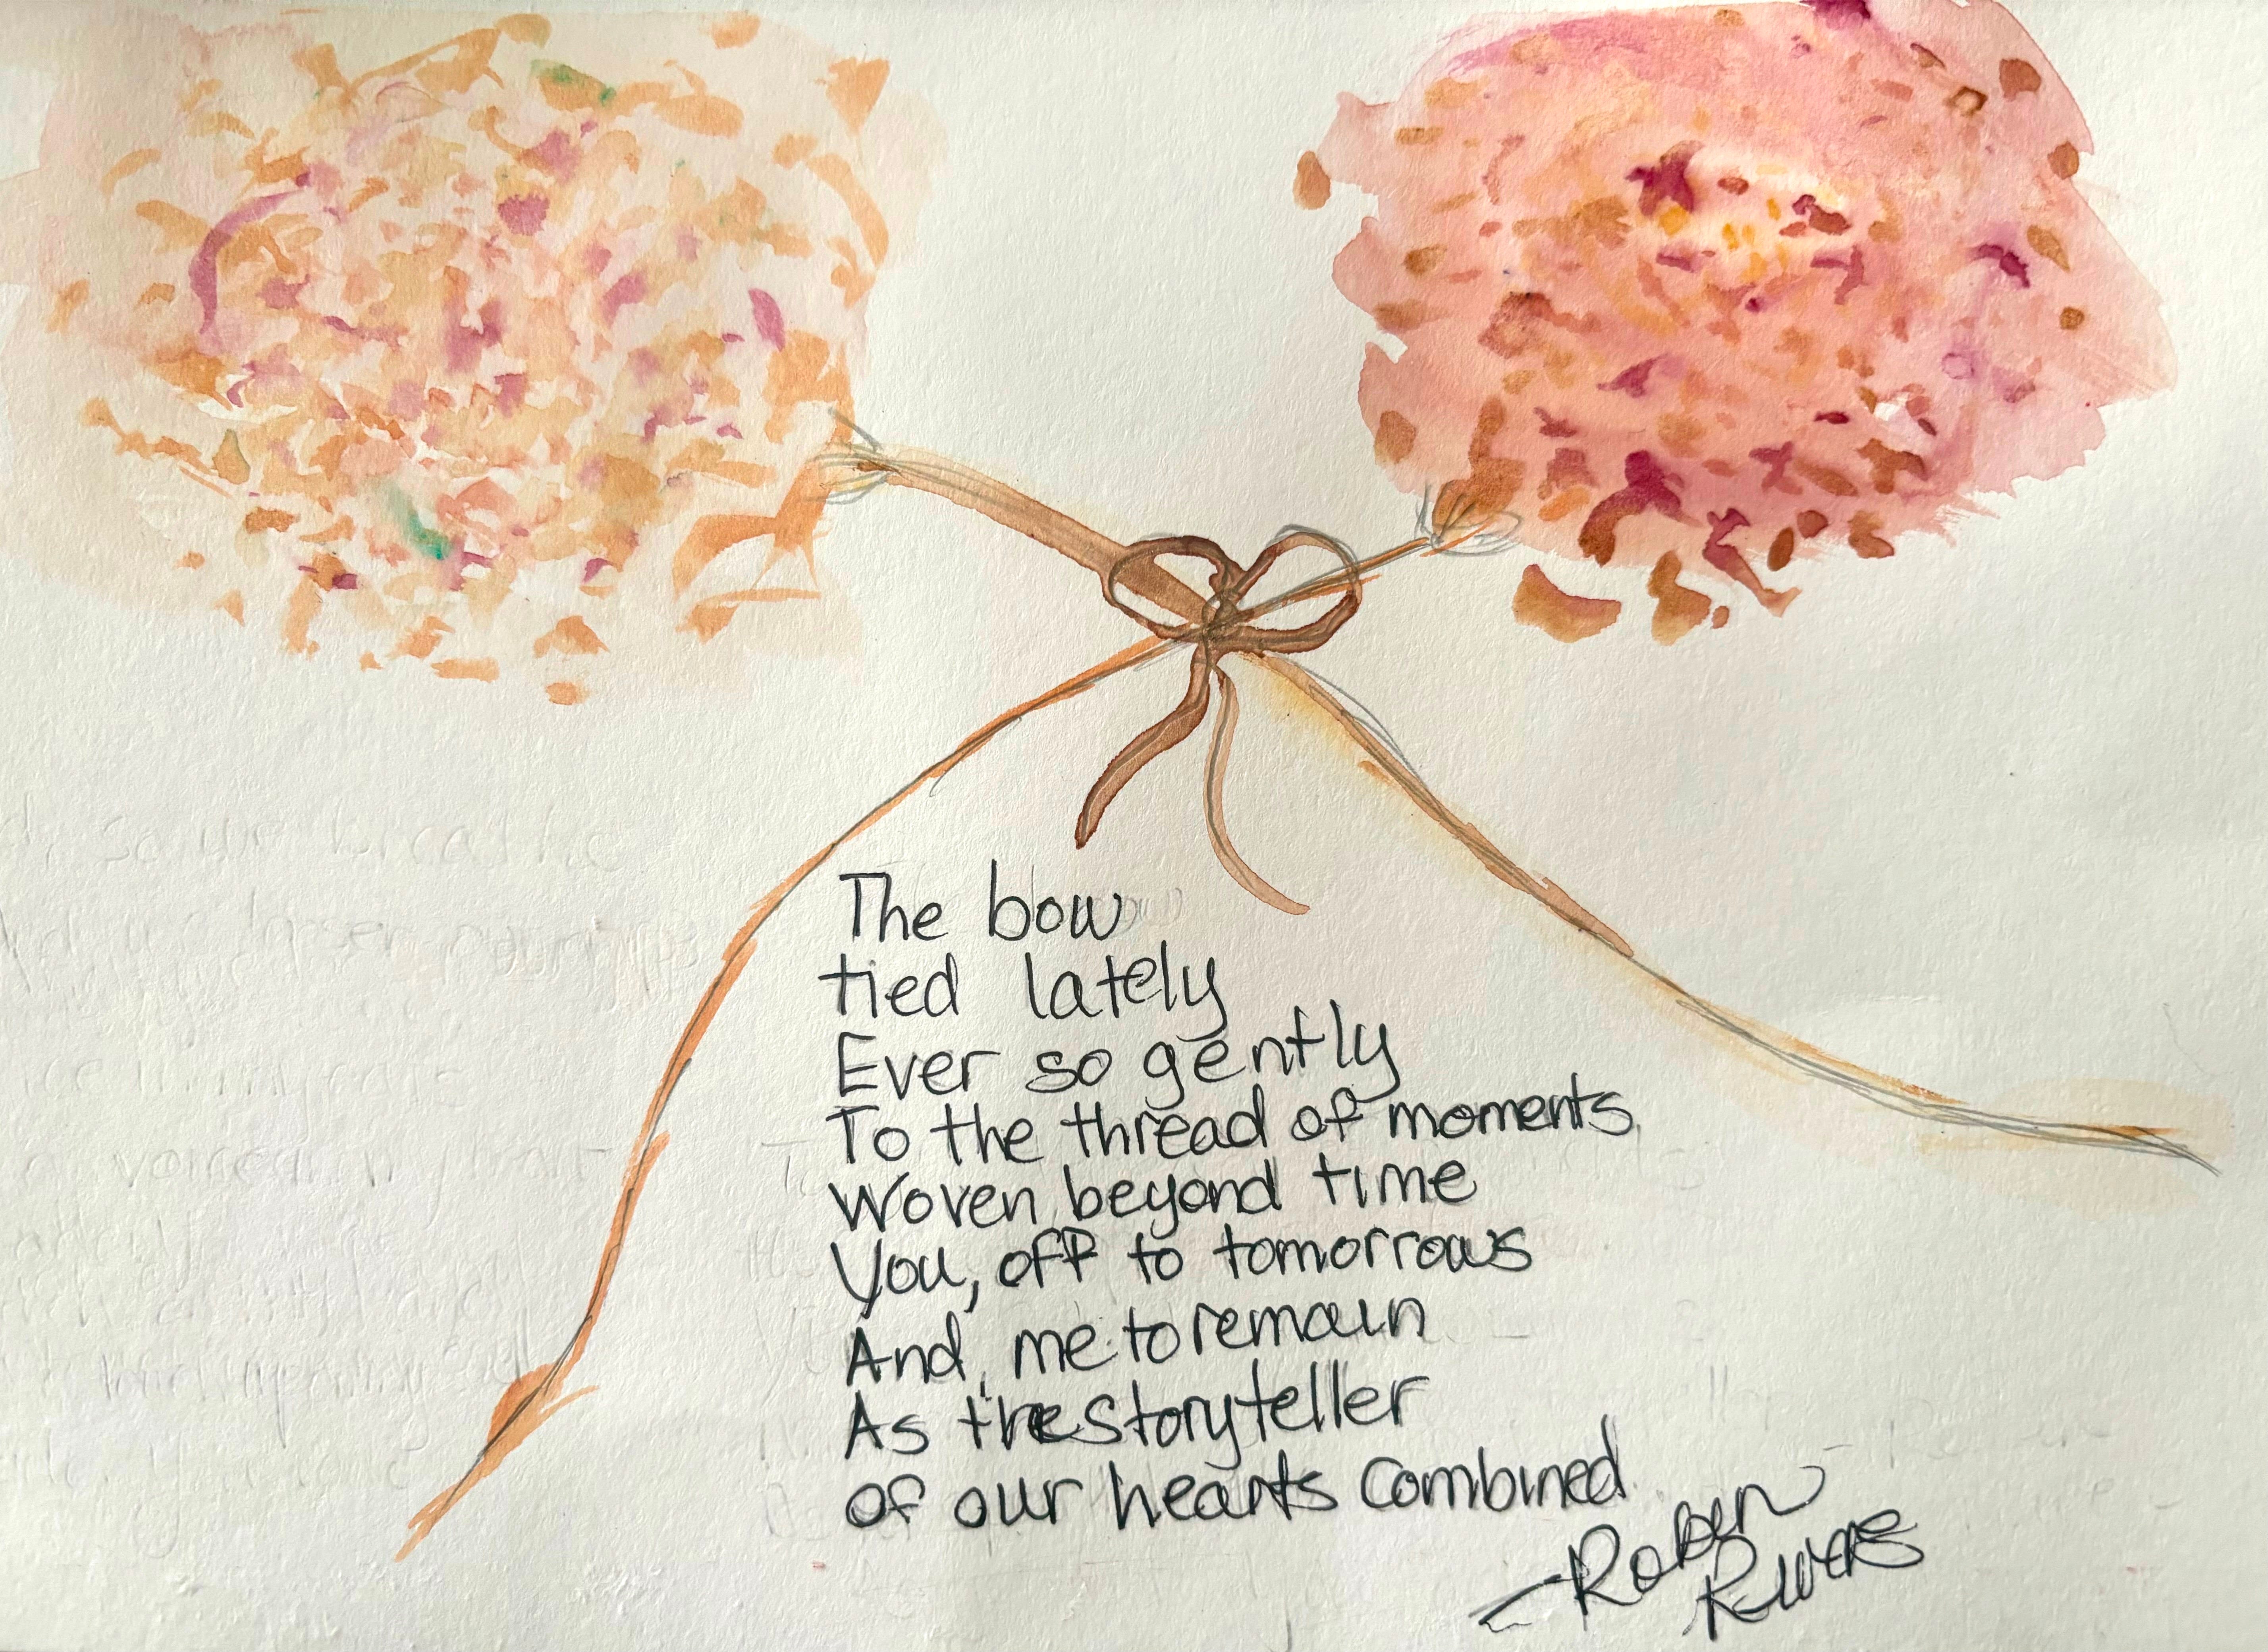 The bow
tied lately
Ever so gently
To the thread of moments
Woven beyond time
You, off to tomorrows
And, me to remain
As the storyteller
of our hearts combined
-Robin
Rivers